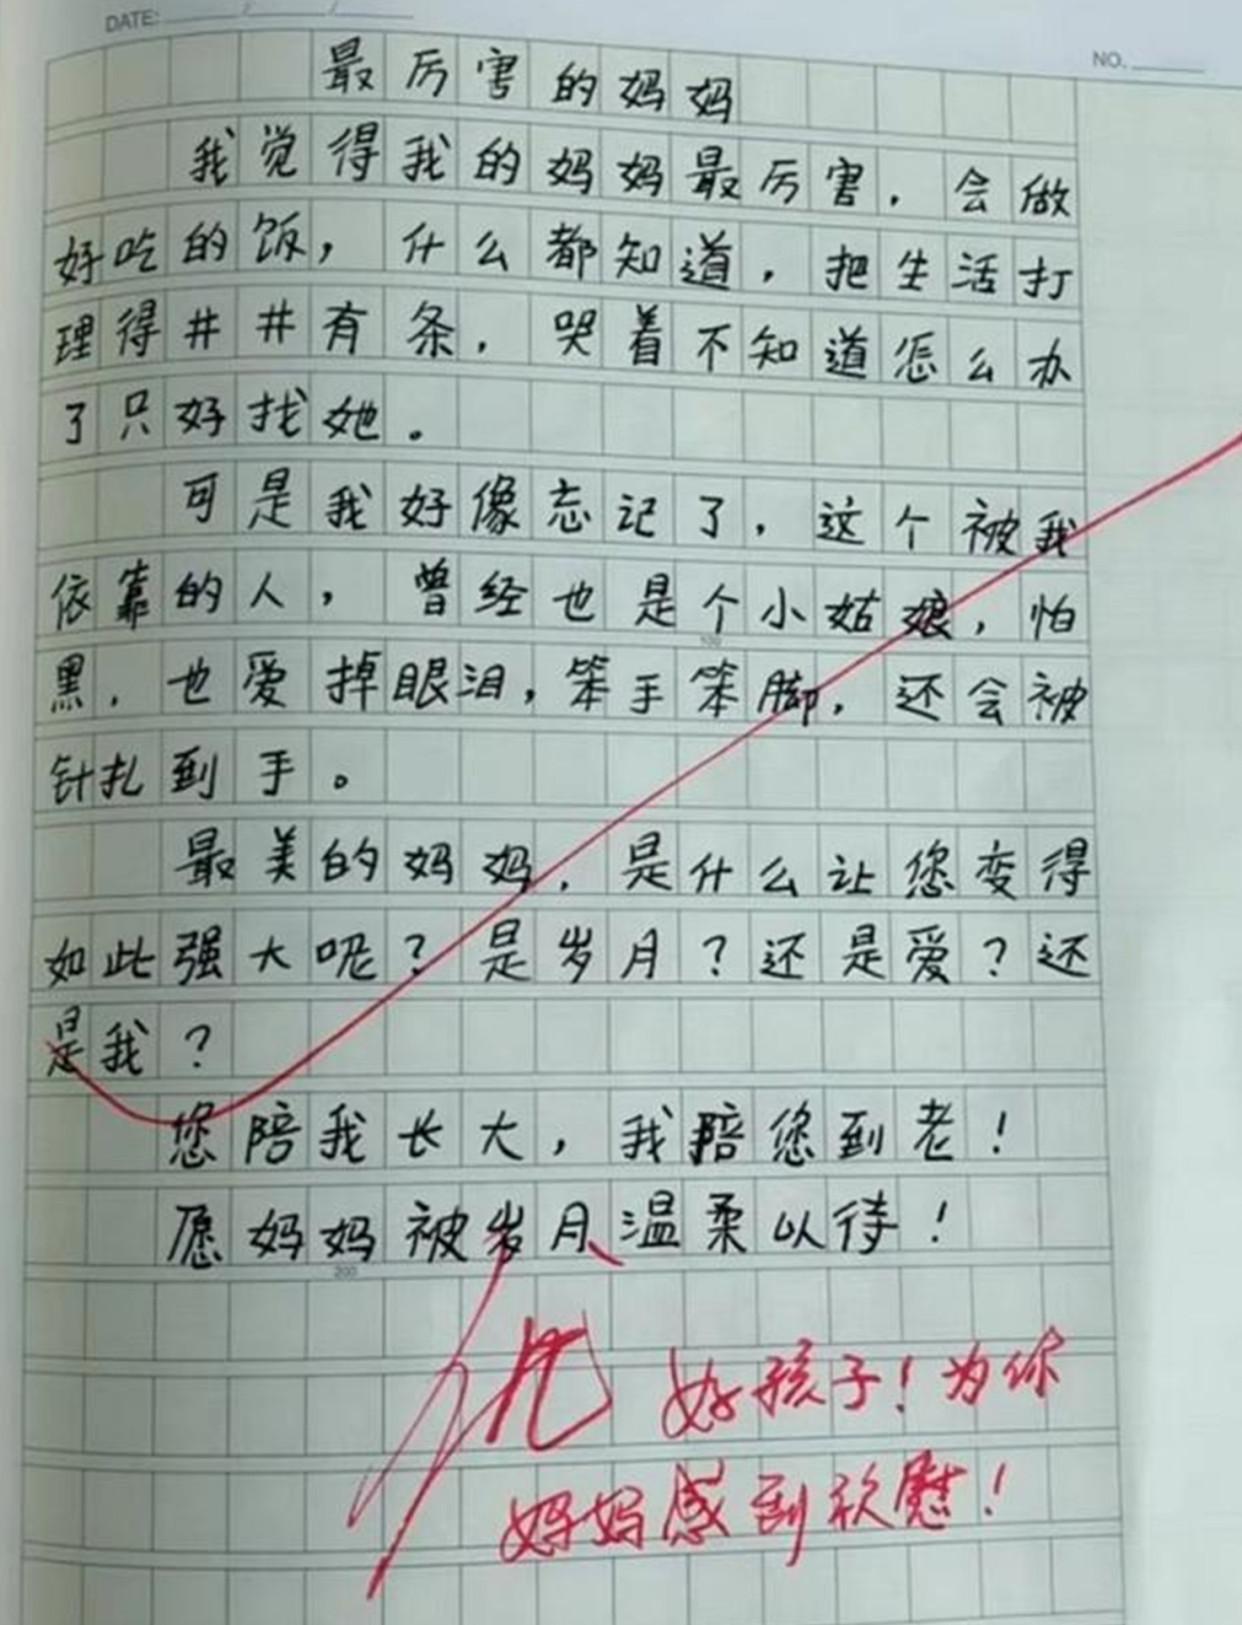 DATE: / /
NO.
最厉害的妈妈
我觉得我的妈妈最厉害，会做
好吃的饭，什么都知道，把生活打
理得井井有条，哭着不知道怎么办
了只好找她。
可是我好像忘记了，这个被我
依靠的人，曾经也是个小姑娘，怕
黑，也爱掉眼泪，笨手笨脚，还会被
100
针扎到手。
最美的妈妈，是什么让您变得
如此强大呢？是岁月？还是爱？还
是我？
您陪我长大，我陪您到老！
愿妈妈被岁月温柔以待！
200
优 好孩子！为你
妈妈感到欣慰！